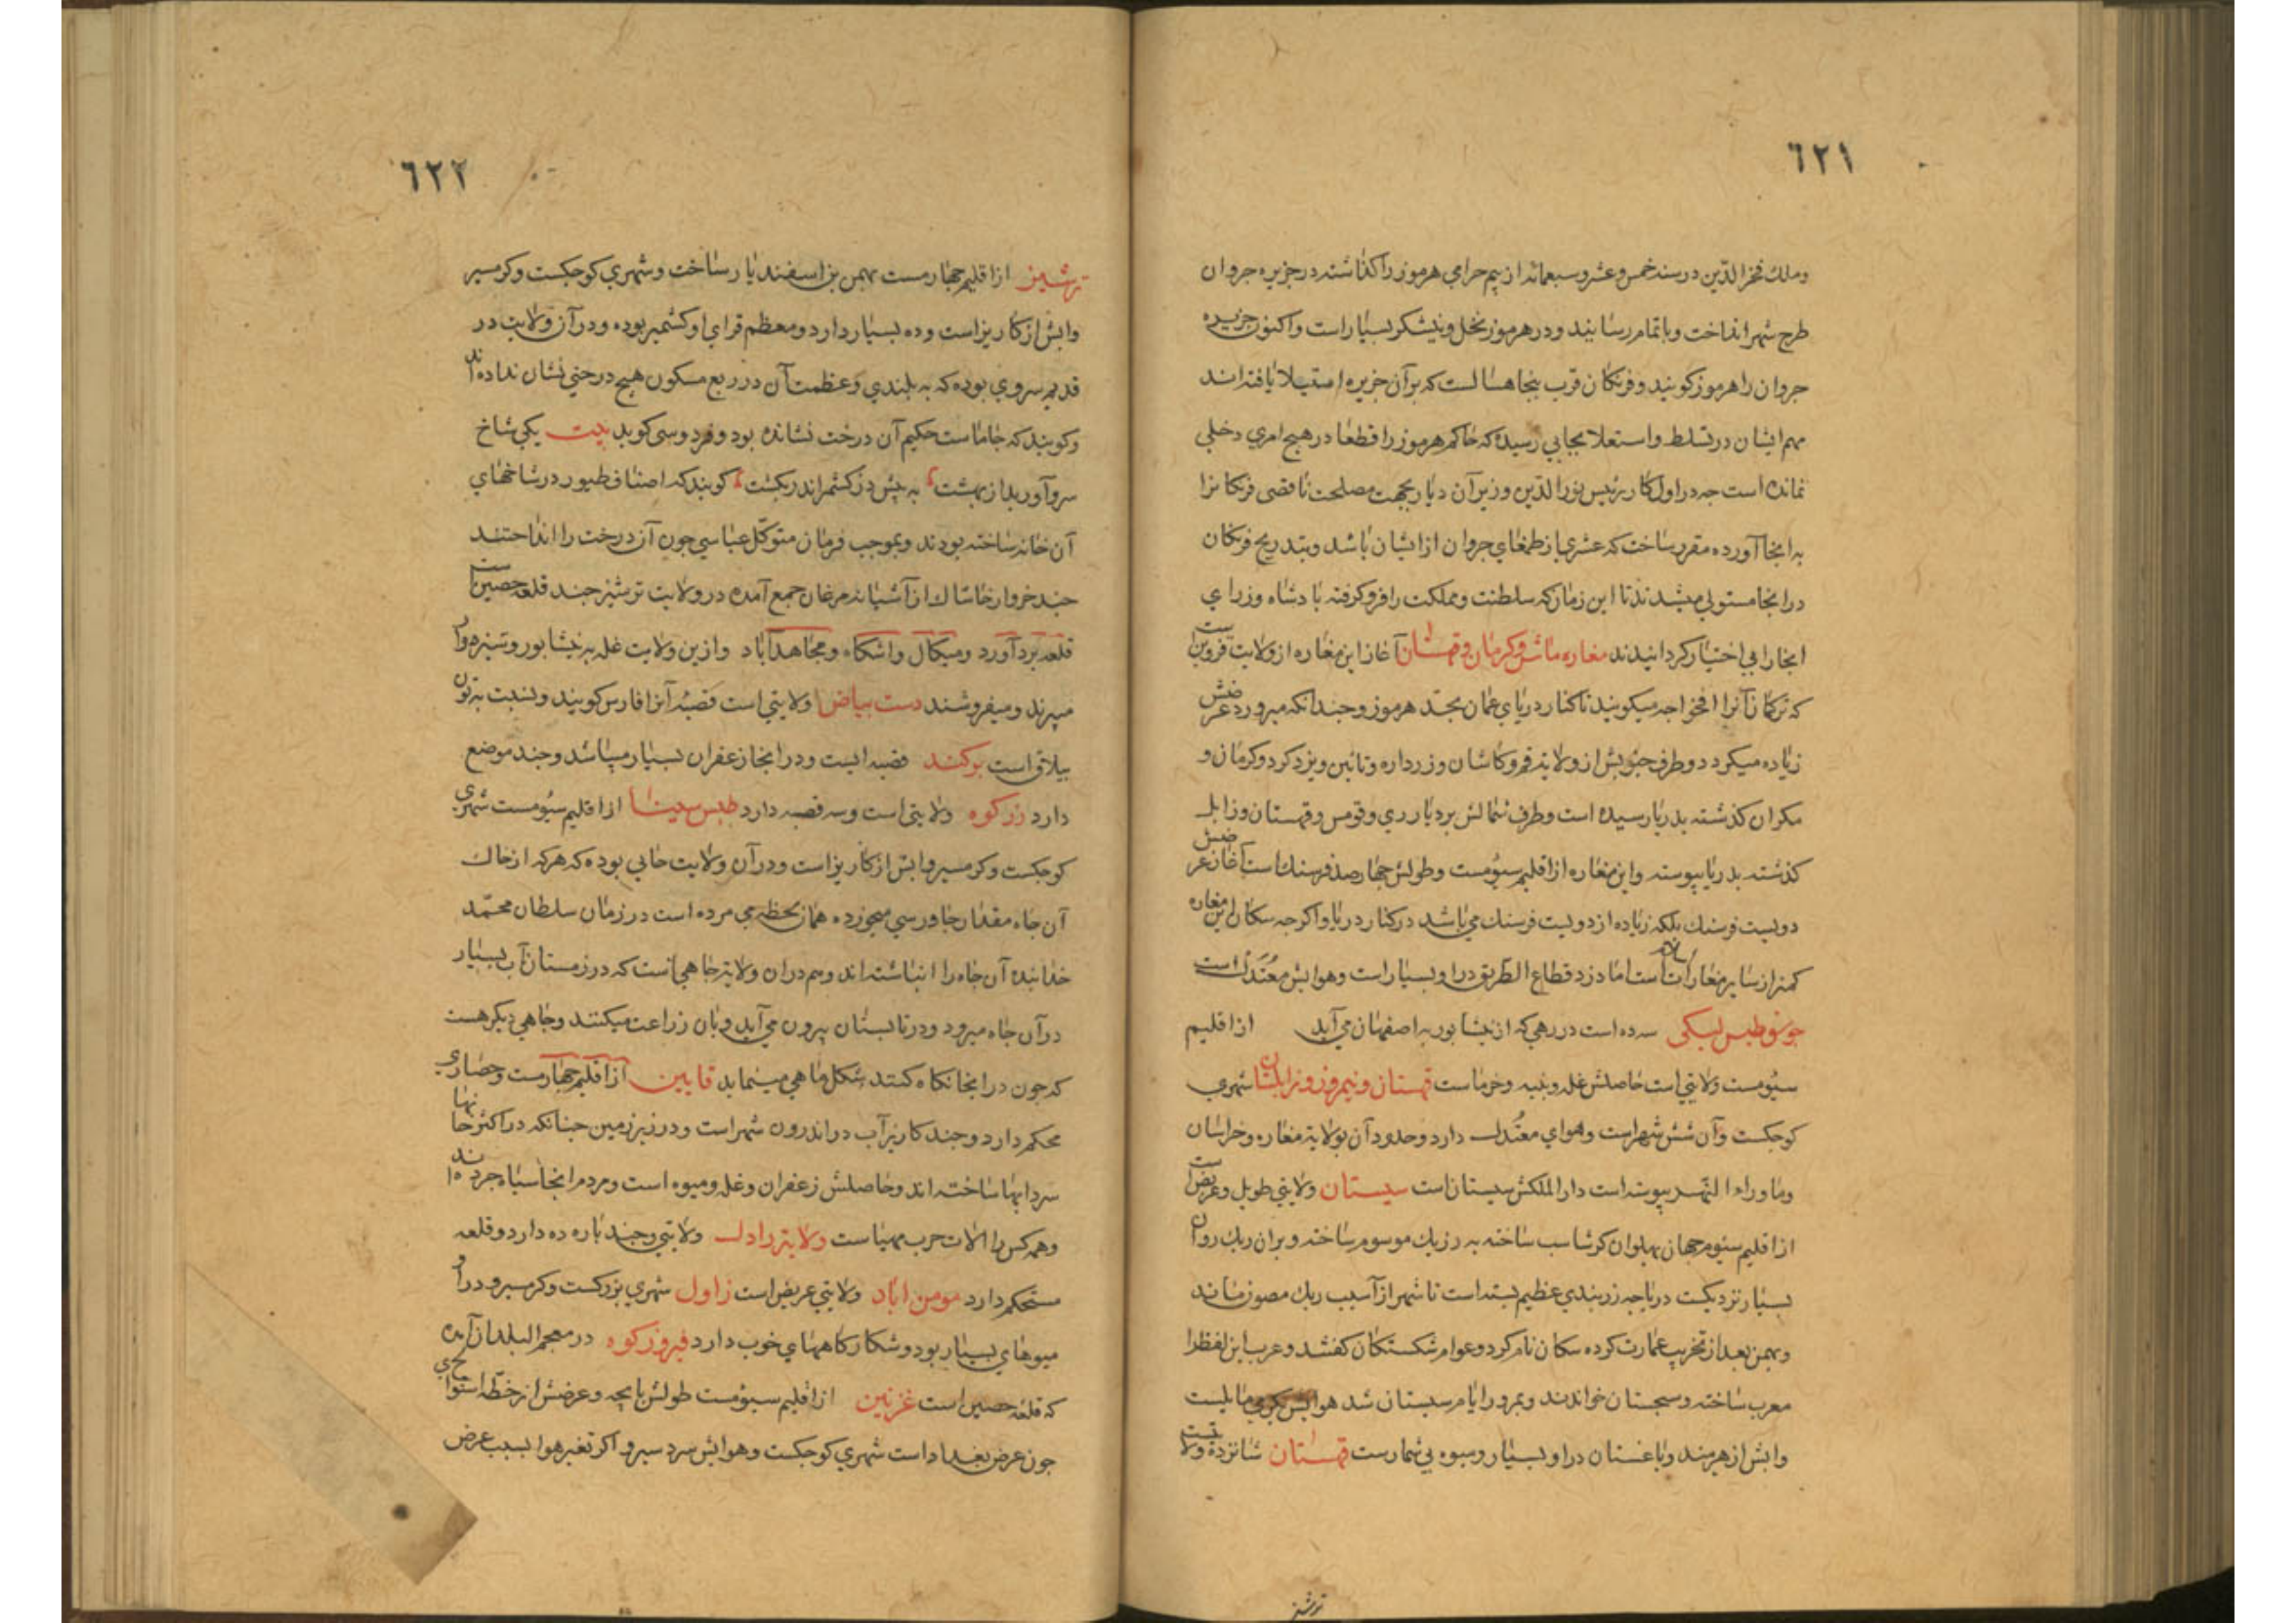 ٦٢١
وملك فخر الدّين در سنه خمس وعشر وسبعمائه از بيم حرامى هرموز را كذاشته در جزيره جروان
طرح شهر انداخت وباتمام رسانيد ودر هرموز نخل ونيشكر بسيار است واكنون جزيره
جروان را هرموز كويند وفرنكان قرب پنجاه سالست كه بر آن جزيره استيلا يافته اند
مهم ايشان در تسلط واستعلا بجايي رسيده كه حاكم هرموز را قطعا در هيج امرى دخلى
نمانده است جه در اول كار رئيس نور الدّين وزير آن ديار بجهت مصلحت ناقصى فرنكانرا
به انجا آورده مقرر ساخت كه عشرى از طمغاى جروان از ايشان باشد وبتدريج فرنكان
در انجا مستولى ميشدند تا اين زمان كه سلطنت ومملكت را فرو كرفته پادشاه وزراى
انجارا بى اختيار كردانيدند مغاره مابين كرمان وقهستان آغاز اين مغاره از ولايت قزوين است
كه تركمانان آنرا افخواجه ميكويند تا كنار درياى عمان بحدّ هرموز وجندانكه ميرود عرضش
زياده ميكردد وطرف جنوبش از ولايت قم وكاشان وزرداره ونائين ويزد كرد وكرمان و
مكران كذشته بدريا رسيده است وطرف شمالش برديار رى وقومس وقهستان وزابل
كذشته بدريا پيوسته واين مغاره از اقليم سيّومست وطولش جهارصد فرسنك است آغاز عرضش
دويست فرسنك بلكه زياده از دويست فرسنك مى باشد در كنار دريا واكرجه سكان اين مغاره
كمتر از ساير مغارات است اما دزد قطاع الطّريق در او بسيار است وهوايش معتدل است
جوسق طبس ليكى سه ده است در رهى كه از نيشابور به اصفهان مى آيد از اقليم
سيّومست ولايتى است حاصلش غله وپنبه وخرماست قهستان ونيمروز وزابلستان شهرى
كوجكست وآن شش شهر است وهواى معتدل دارد وحدود آن بولايت مغاره وخراسان
وما وراء النّهر پيوسته است دار الملكش سيستان است سيستان ولايتى طويل وعريض است
از اقليم سيّوم جهان پهلوان كرشاسب ساخته به رزيك موسوم ساخته وبران ريك روان
بسيار نزديكست درياجه زر بندى عظيم بسته است تا شهر از آسيب ريك مصون ماند
وبهمن بعد از تخريب عمارت كرده سكان نام كرد وعوام شكستكان كفتند وعرب اين لفظ را
معرب ساخته وسجستان خواندند وبمرور ايام سيستان شد هوايش بكرمى مايلست
وابش از هيرمند وباغستان در او بسيار وميوه بى شمارست قهستان شانزده ولايتست
ترشيز
٦٢٢
ترشيز از اقليم جهارمست بهمن بن اسفنديار ساخت وشهرى كوجكست وكرمسير
وابش از كاريز است وده بسيار دارد ومعظم قراى او كشمير بوده ودر آن ولايت در
قديم سروى بوده كه به بلندى وعظمت آن در ربع مسكون هيج درختى نشان نداده اند
وكويند كه جاماست حكيم آن درخت نشانده بود وفردوسى كويد بيت يكى شاخ
سرو آوريد از بهشت ٬ به پيش در كشمر اندر بكشت ٬ كويند كه اصناف طيور در شاخهاى
آن خانه ساخته بودند وبموجب فرمان متوكّل عباسى جون آن درخت را انداختند
جند خروار خاشاك از آشيانه مرغان جمع آمده در ولايت ترشيز جند قلعه حصين است
قلعه بردآورد وميكال واشكاه ومجاهدآباد وازين ولايت غله به نيشابور وسبزه وار
ميبرند وميفروشند دست بياض ولايتى است قصبه آنرا فارس كويند ونسبت به تون
ييلاق است بركند قصبه ايست ودر انجا زعفران بسيار ميباشد وجند موضع
دارد زركوه ولايتى است وسه قصبه دارد طبس سينا از اقليم سيّومست شهرى
كوجكست وكرمسير وابش از كاريز است ودر آن ولايت جاهى بوده كه هركه از خاك
آن جاه مقدار جاورسى ميخورده همان لحظه مى مرده است در زمان سلطان محمّد
خدابنده آن جاه را انباشته اند وهم در ان ولايت جاهى است كه در زمستان آب بسيار
در آن جاه ميرود ودر تابستان بيرون مى آيد وبان زراعت ميكنند وجاهى ديكر هست
كه جون در انجا نكاه كنند شكل ماهى مينمايد قايين از اقليم جهارمست وحصارى
محكم دارد وجند كاريز آب در اندرون شهر است ودر زير زمين جنانكه در اكثر خانها
سردابها ساخته اند وحاصلش زعفران وغله وميوه است ومردم انجا سياه جرده اند
وهمه كس را الات حرب مهياست ولايت زادل ولايتى وجند باره ده دارد وقلعه
مستحكم دارد مومن اباد ولايتى عريض است زاول شهرى بزركست وكرمسير ودر او
ميوهاى بسيار بود وشكاركاههاى خوب دارد فيروزكوه در معجم البلدان آمده
كه قلعه حصين است غزنين از اقليم سيّومست طولش يا يجه وعرضش از خط استوا لج ى
جون عرض بغداد است شهرى كوجكست وهوايش سرد سير واكر تغير هوا بسبب عرض